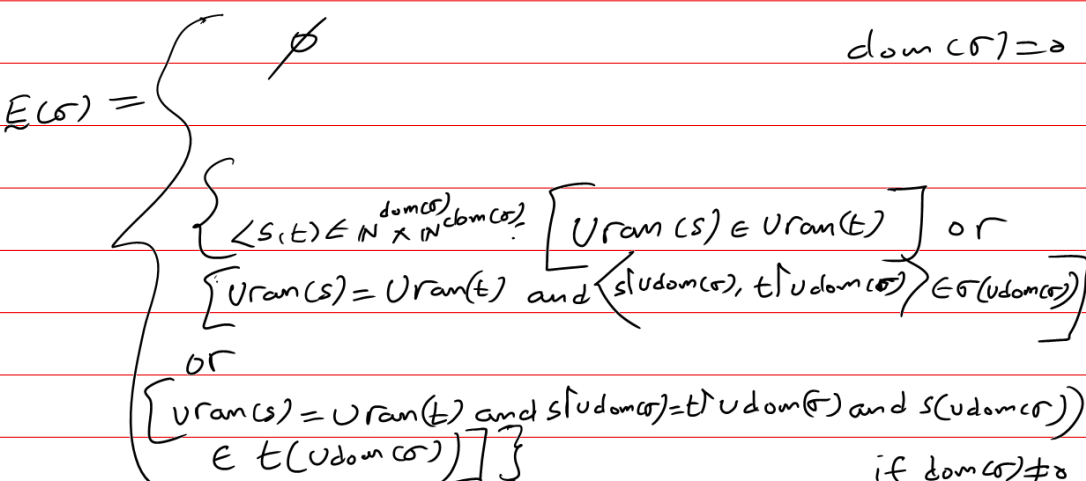 ∅ dom(σ)=0
E(σ) = {
{<s,t> ∈ ℕ^dom(σ) × ℕ^dom(σ) : [∪ran(s) ∈ ∪ran(t)] or
[∪ran(s) = ∪ran(t) and <s↾∪dom(σ), t↾∪dom(σ)> ∈ σ(∪dom(σ))]
or
[∪ran(s) = ∪ran(t) and s↾∪dom(σ) = t↾∪dom(σ) and s(∪dom(σ))
∈ t(∪dom(σ))]}
if dom(σ)≠0